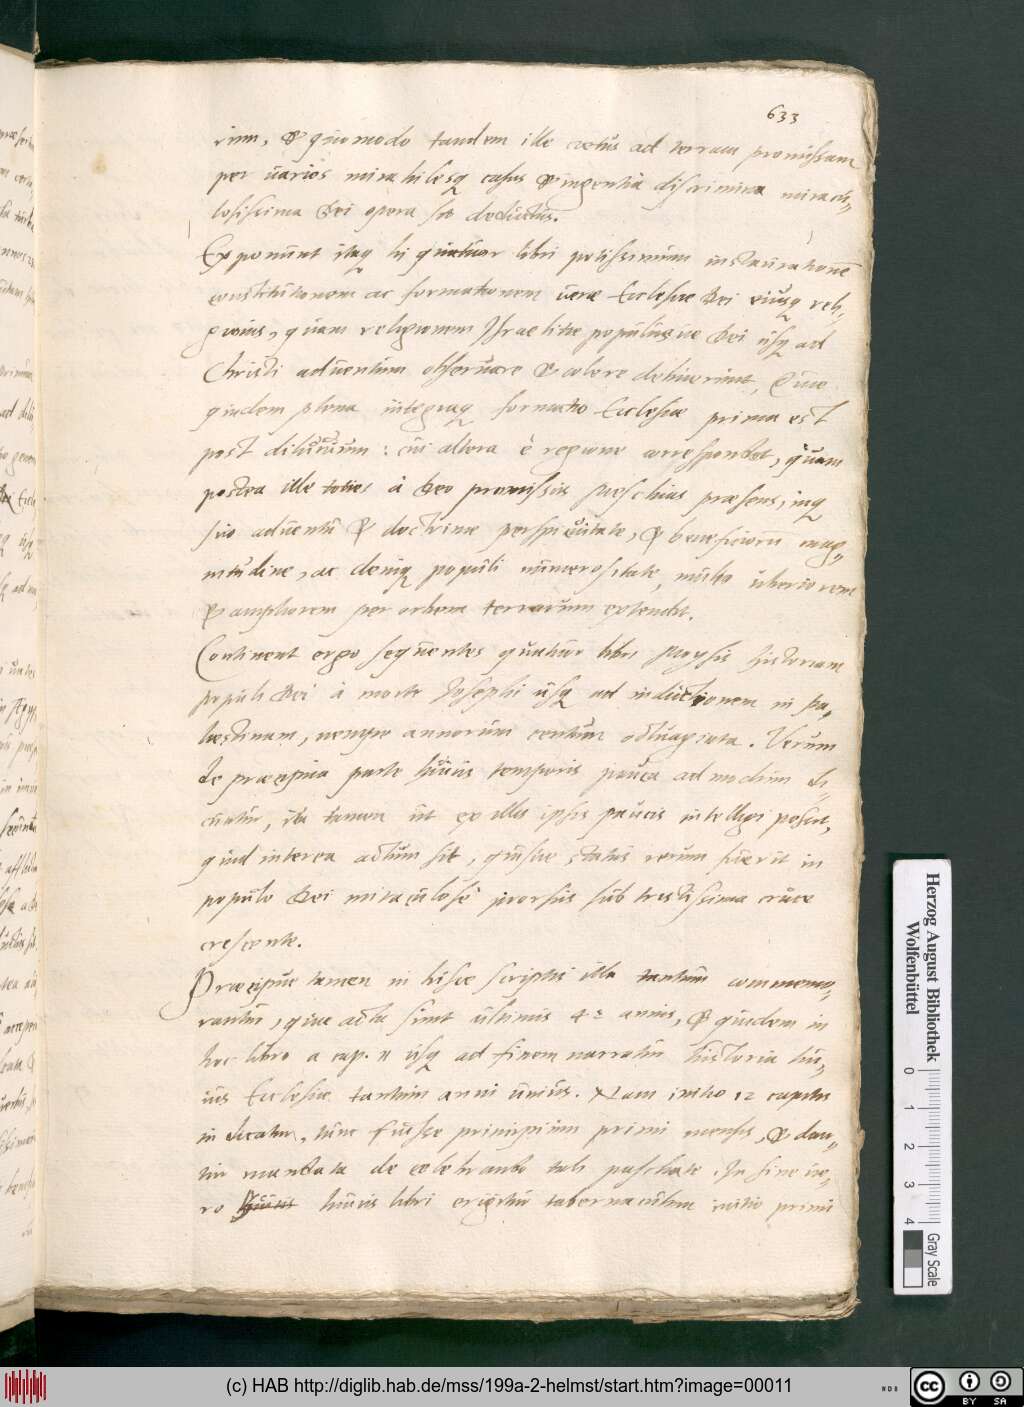 633
rum, & quomodo tandem ille coetus ad terram promissam
per varios mirabilesq casus & ingentia discrimina miracu-
losissima Dei opera sit deductus.
Exponunt itaq hi quatuor libri potissimum instaurationē
constitutionem ac formationem verae Ecclesiae Dei eiusq reli-
gionis, quam religionem Israelitae populusque Dei usq ad
Christi adventum observare & colere debuerunt, Quae
quidem plena integraq formatio Ecclesiae prima est
post diluvium: cui altera è regione correspondet, quam
postea ille toties à Deo promissus Meschias praesens, inq
suo adventu & doctrinae perspicuitate, & beneficiorū mag-
nitudine, ac deniq populi numerositate, multo uberiorem
& ampliorem per orbem terrarum extendit.
Continent ergo sequentes quatuor libri Moysis historiam
populi Dei à morte Josephi usq ad inductionem in Pa-
laestinam, nempe annorum centum octuaginta. Verum
de praecipua parte huius temporis pauca admodum di-
cuntur, ita tamen ut ex illis ipsis paucis intelligi possit,
quid interea actum sit, quisue status rerum fuerit in
populo Dei miraculosè prorsus sub tristissima cruce
crescente.
Praecipue tamen in hisce scriptis illa tantum commemo-
rantur, quae acta sunt ultimis 42 annis, & quidem in
hoc libro a cap. 11 usq ad finem narratur historia hu-
ius Ecclesiae tantum anni unius. Nam initio 12 capitis
indicatur, tunc fuisse principium primi mensis, & dan-
tur mandata de celebrando tali paschate. In fine ve-
ro huius libri erigitur tabernaculum initio primi
Herzog August Bibliothek
Wolfenbüttel
0 1 2 3 4
Gray Scale
(c) HAB http://diglib.hab.de/mss/199a-2-helmst/start.htm?image=00011
cc BY SA